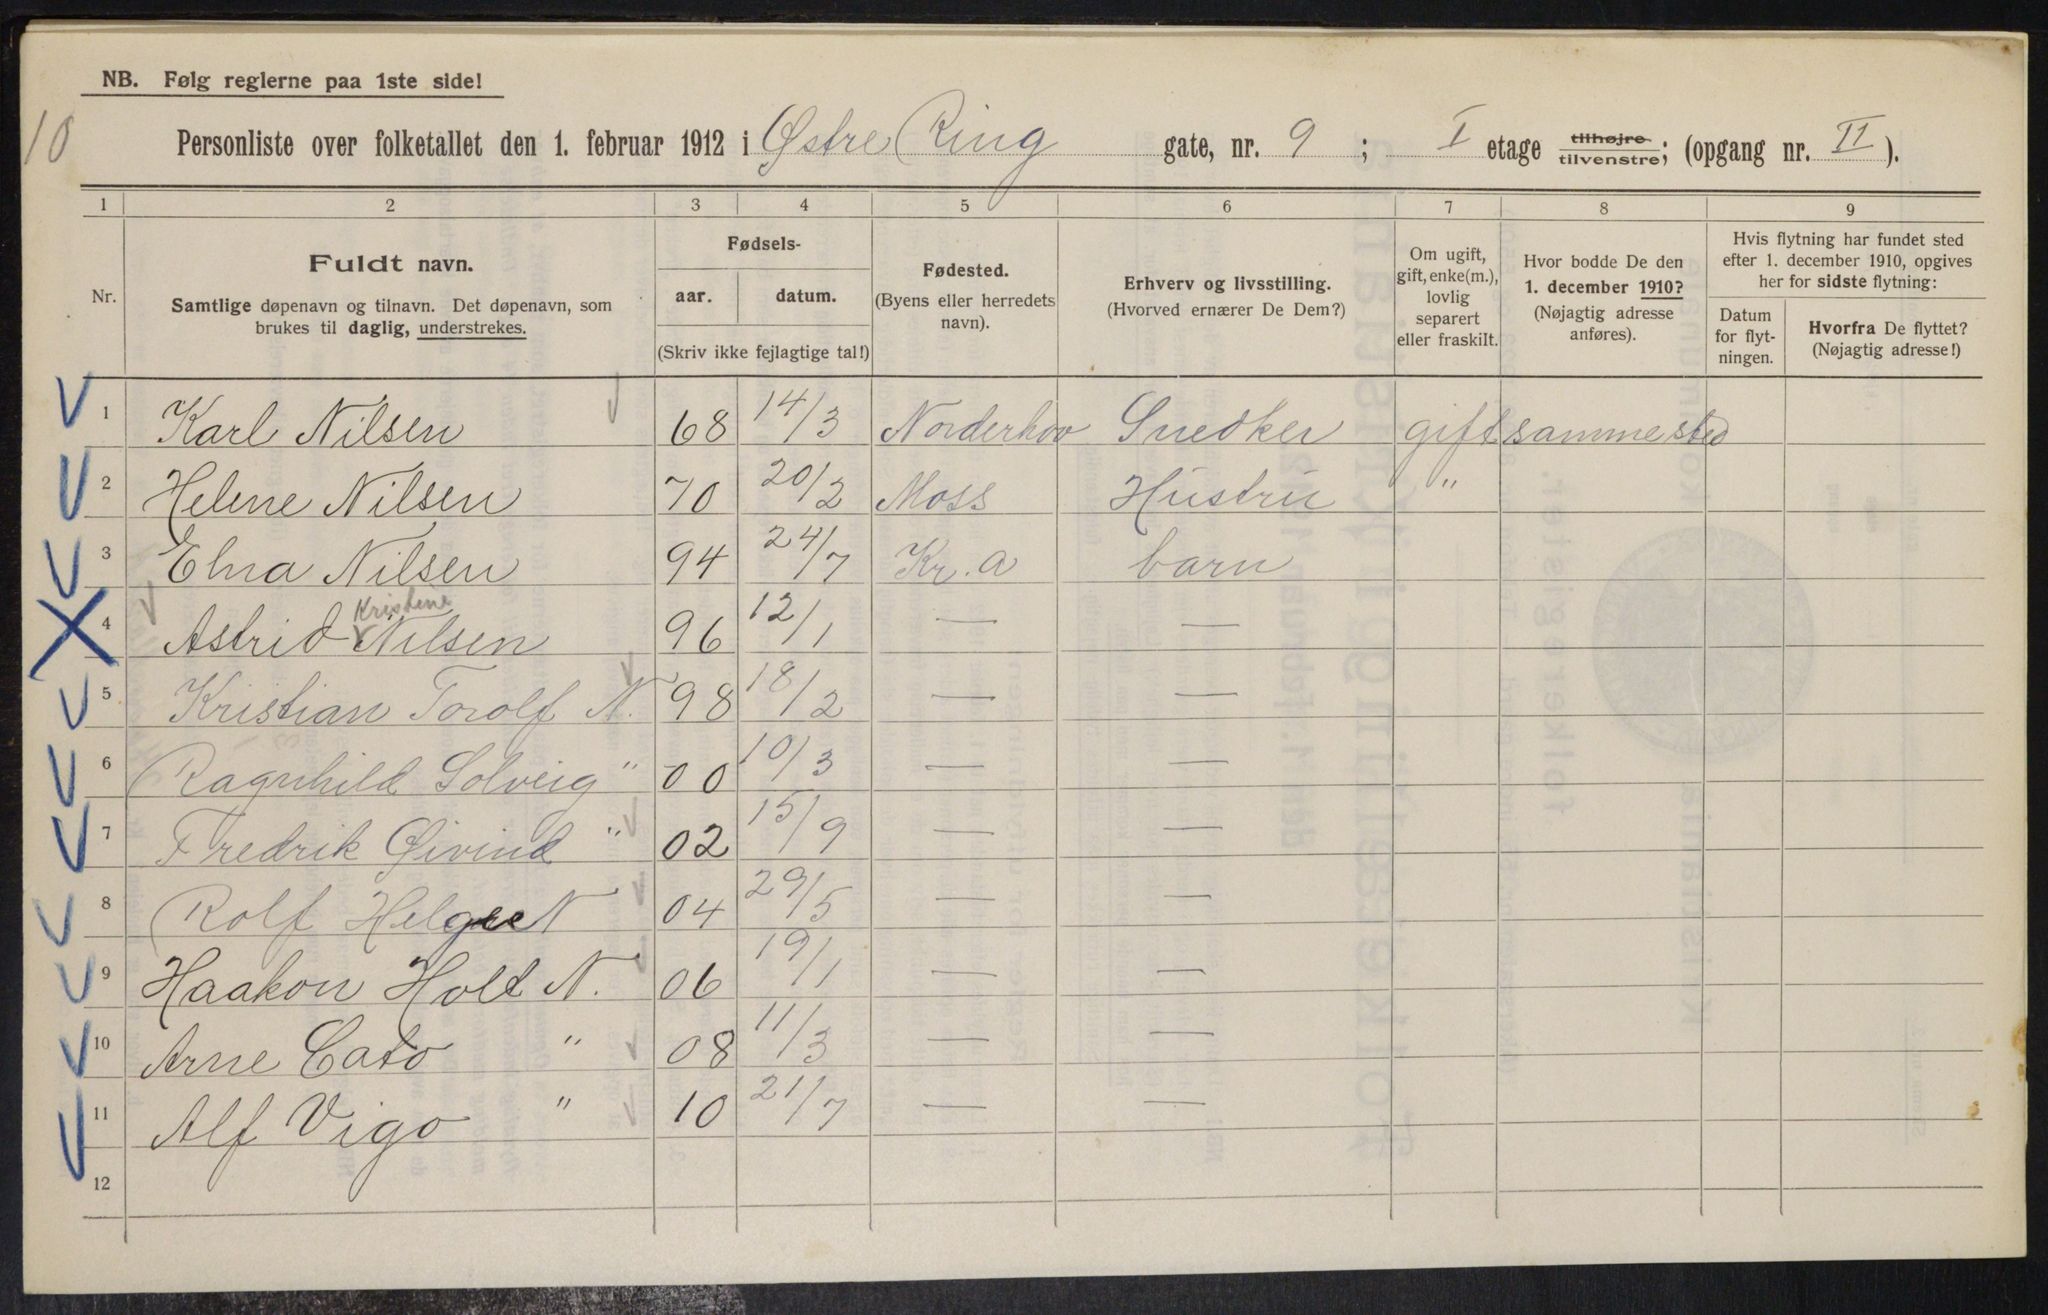 NB. Følg reglerne paa 1ste side!
10
Personliste over folketallet den 1. februar 1912 i Østre Ring gate, nr. 9 ; I etage tilhøjre tilvenstre; (opgang nr. II ).
1 2 3 4 5 6 7 8 9
Nr.
Fuldt navn.
Samtlige døpenavn og tilnavn. Det døpenavn, som
brukes til daglig, understrekes.
Fødsels-
aar. datum.
(Skriv ikke fejlagtige tal!)
Fødested.
(Byens eller herredets
navn).
Erhverv og livsstilling.
(Hvorved ernærer De Dem?)
Om ugift,
gift, enke(m.),
lovlig
separert
eller fraskilt.
Hvor bodde De den
1. december 1910?
(Nøjagtig adresse
anføres).
Hvis flytning har fundet sted
efter 1. december 1910, opgives
her for sidste flytning:
Datum
for flyt-
ningen.
Hvorfra De flyttet?
(Nøjagtig adresse!)
1 Karl Nilsen 68 14/3 Norderhov Snedker gift sammested
2 Helene Nilsen 70 20/2 Moss Hustru "
3 Elna Nilsen 94 24/7 Kr.a barn
Kristene
4 Astrid Nilsen 96 12/1 — —
5 Kristian Torolf N. 98 18/2 — —
6 Ragnhild Solveig " 00 10/3 — —
7 Fredrik Øivind " 02 15/9 — —
8 Rolf Helge N 04 29/5 — —
9 Haakon Holt N. 06 19/1 — —
10 Arne Cato " 08 11/3 — —
11 Alf Vigo " 10 21/7 — —
12